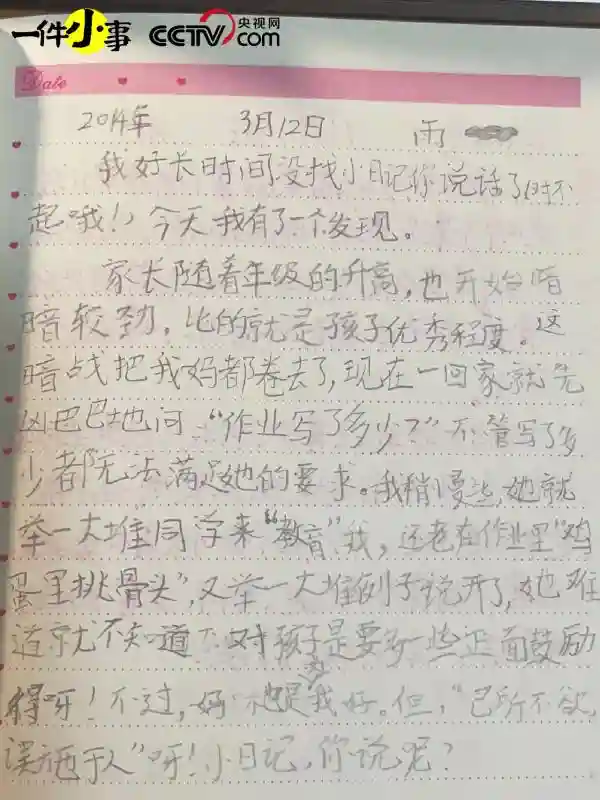 一件小事 CCTV 央视网 com
Date
2014年 3月12日 雨
我好长时间没找小日记你说话了(对不
起哦!)今天我有了一个发现。
家长随着年级的升高,也开始暗
暗较劲,比的就是孩子优秀程度。这
暗战把我妈都卷去了,现在一回家就先
凶巴巴地问“作业写了多少?”不管写了多
少都无法满足她的要求。我稍慢点,她就
举一大堆同学来“教育”我,还老在作业里“鸡
蛋里挑骨头”,又举一大堆例子说开了,她难
道就不知道对孩子是要多一些正面鼓励
得呀!不过,妈也是为我好。但,“己所不欲,
误施于人”呀!小日记,你说呢?